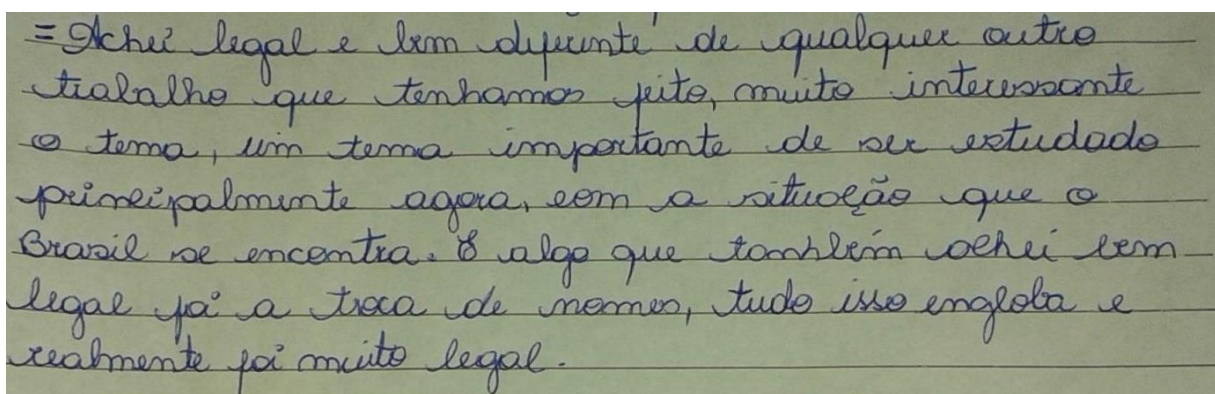 = Achei legal e bem diferente de qualquer outro
trabalho que tenhamos feito, muito interessante
o tema, um tema importante de ser estudado
principalmente agora, com a situação que o
Brasil se encontra. E algo que também achei bem
legal foi a troca de nomes, tudo isso engloba e
realmente foi muito legal.